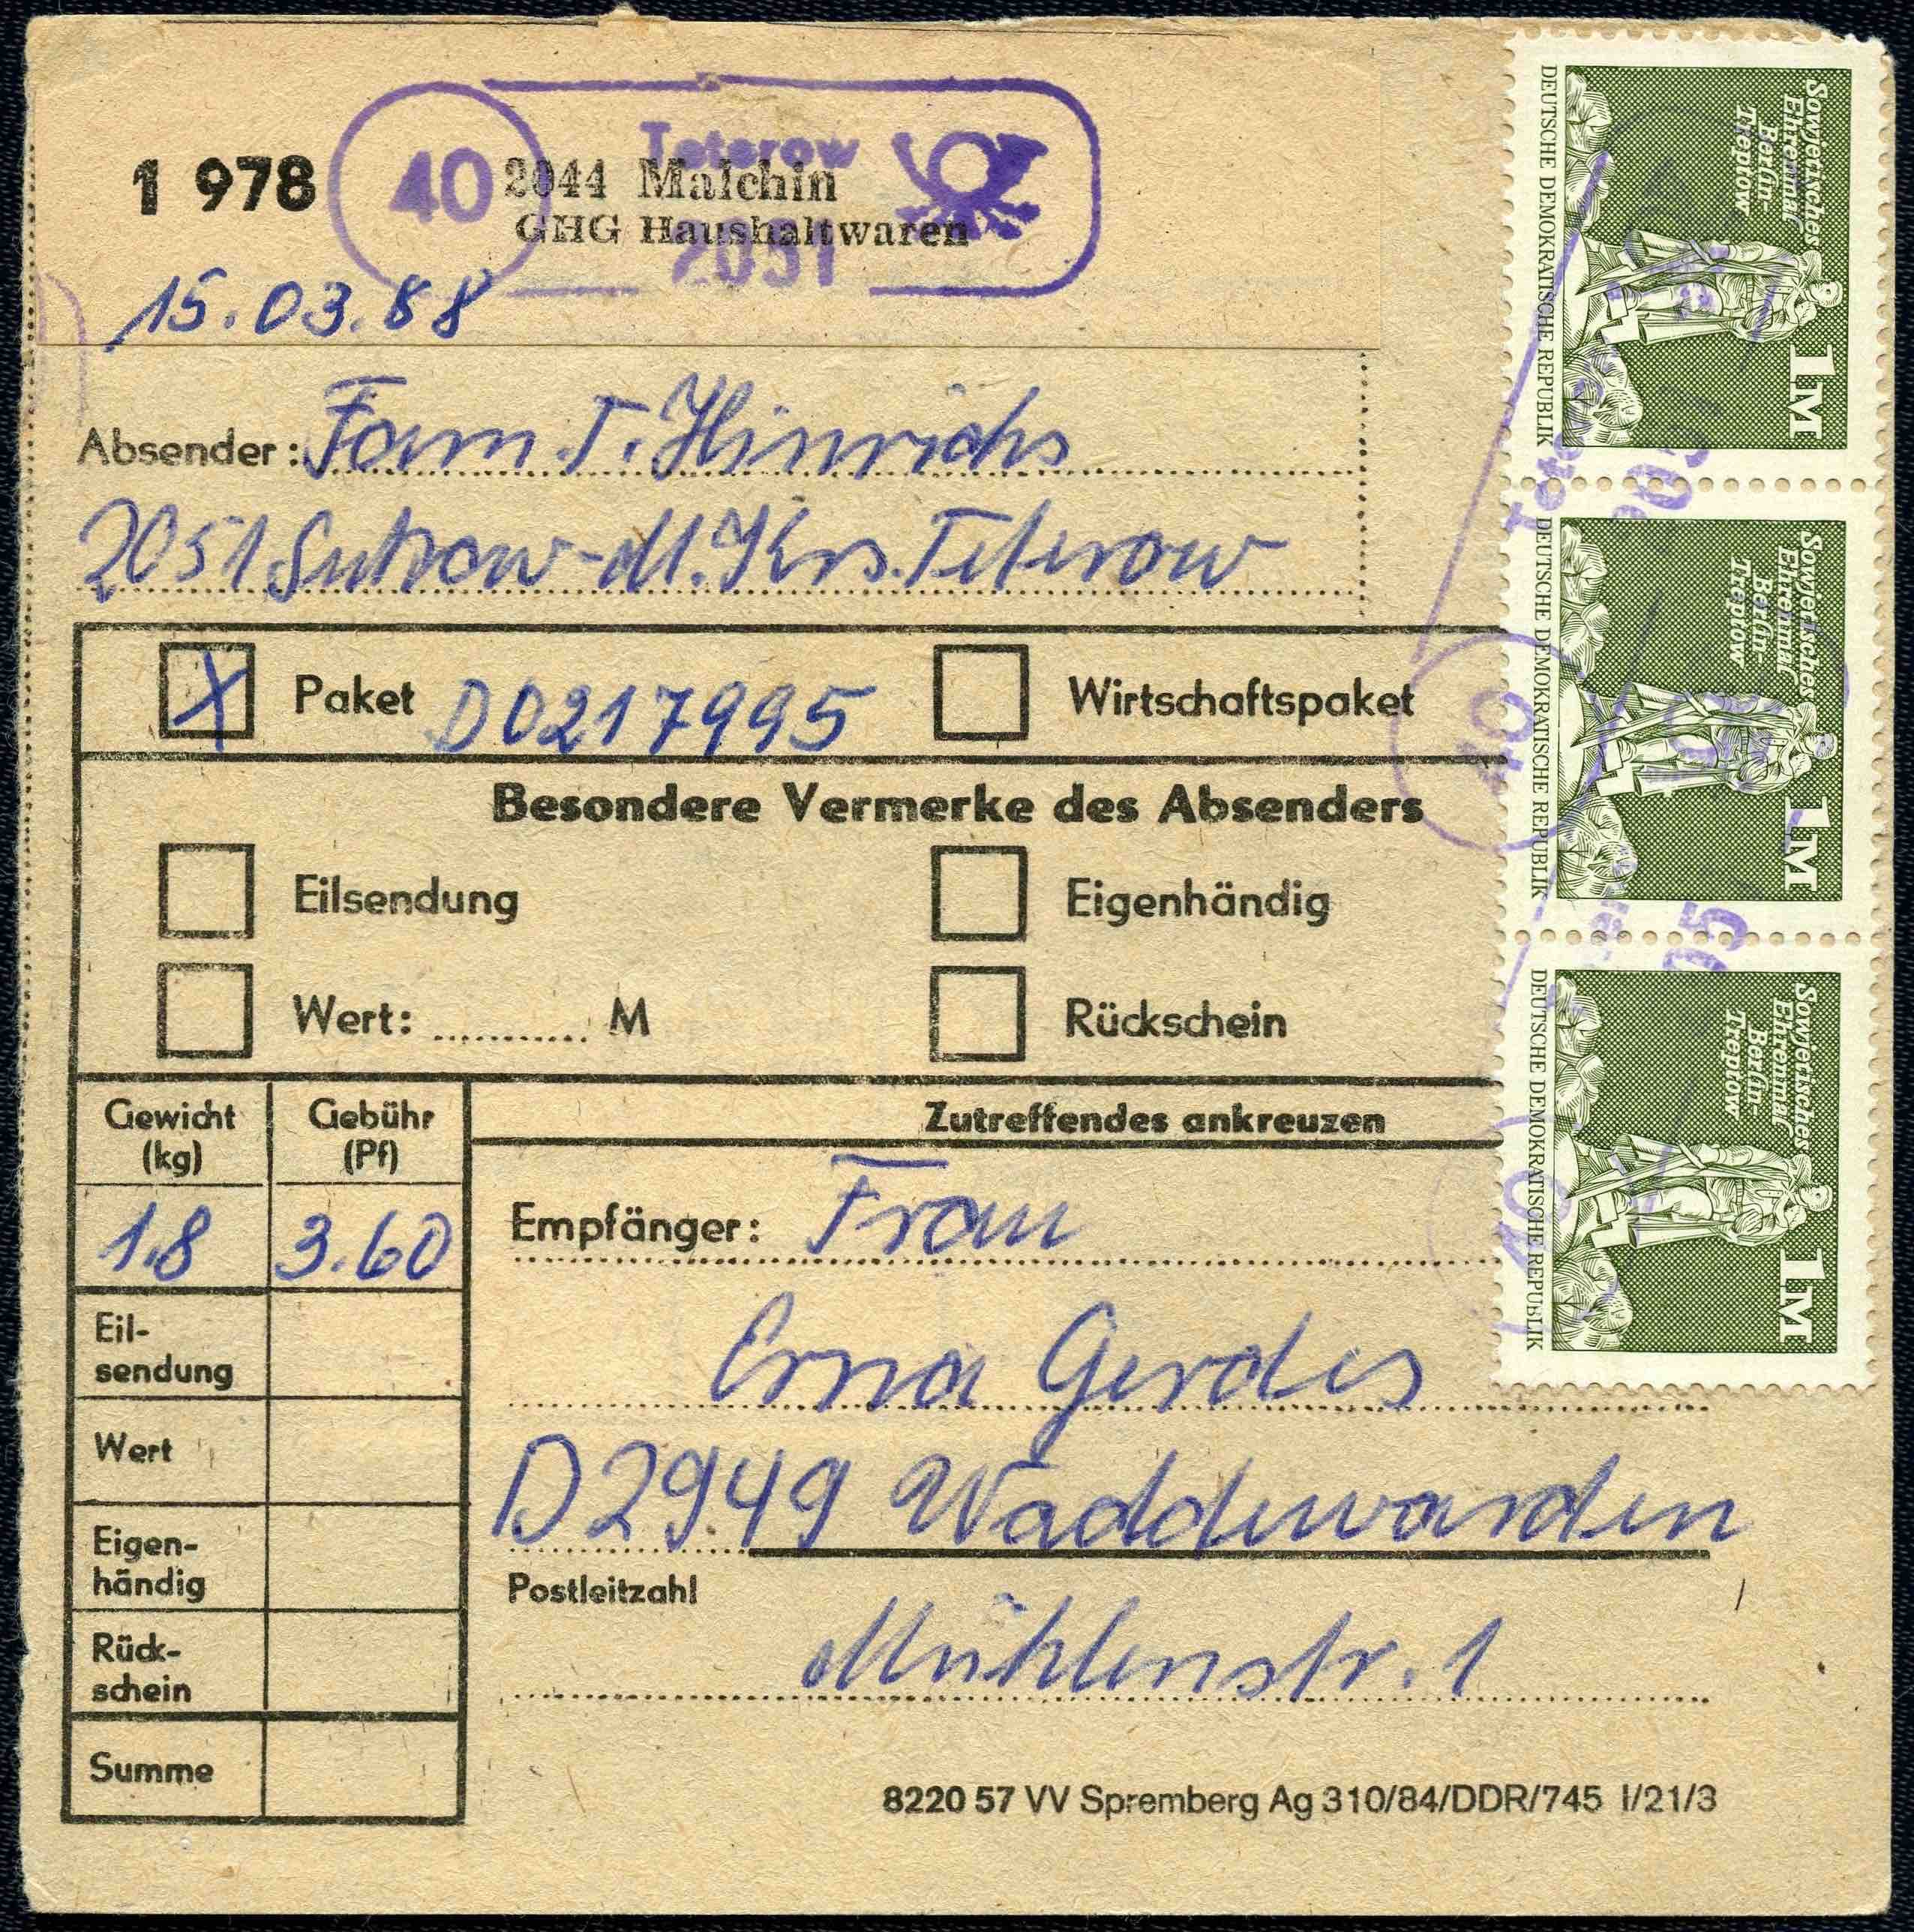 Teterow
1 978 40 2044 Malchin
GHG Haushaltwaren
2051
15.03.88
Absender: Fam. T. Hinrichs
2051 Sukow-M. Krs. Teterow
X Paket D0217995 Wirtschaftspaket
Besondere Vermerke des Absenders
Eilsendung Eigenhändig
Wert: .......... M Rückschein
Zutreffendes ankreuzen
Gewicht (kg) Gebühr (Pf)
1.8 3.60
Eil-
sendung
Wert
Eigen-
händig
Rück-
schein
Summe
Empfänger: Frau
Erna Gerdes
D 2949 Waddewarden
Postleitzahl
Mühlenstr. 1
8220 57 VV Spremberg Ag 310/84/DDR/745 I/21/3
Sowjetisches
Ehrenmal
Berlin-
Treptow
1M
DEUTSCHE DEMOKRATISCHE REPUBLIK
Sowjetisches
Ehrenmal
Berlin-
Treptow
1M
DEUTSCHE DEMOKRATISCHE REPUBLIK
40
Sowjetisches
Ehrenmal
Berlin-
Treptow
1M
DEUTSCHE DEMOKRATISCHE REPUBLIK
40